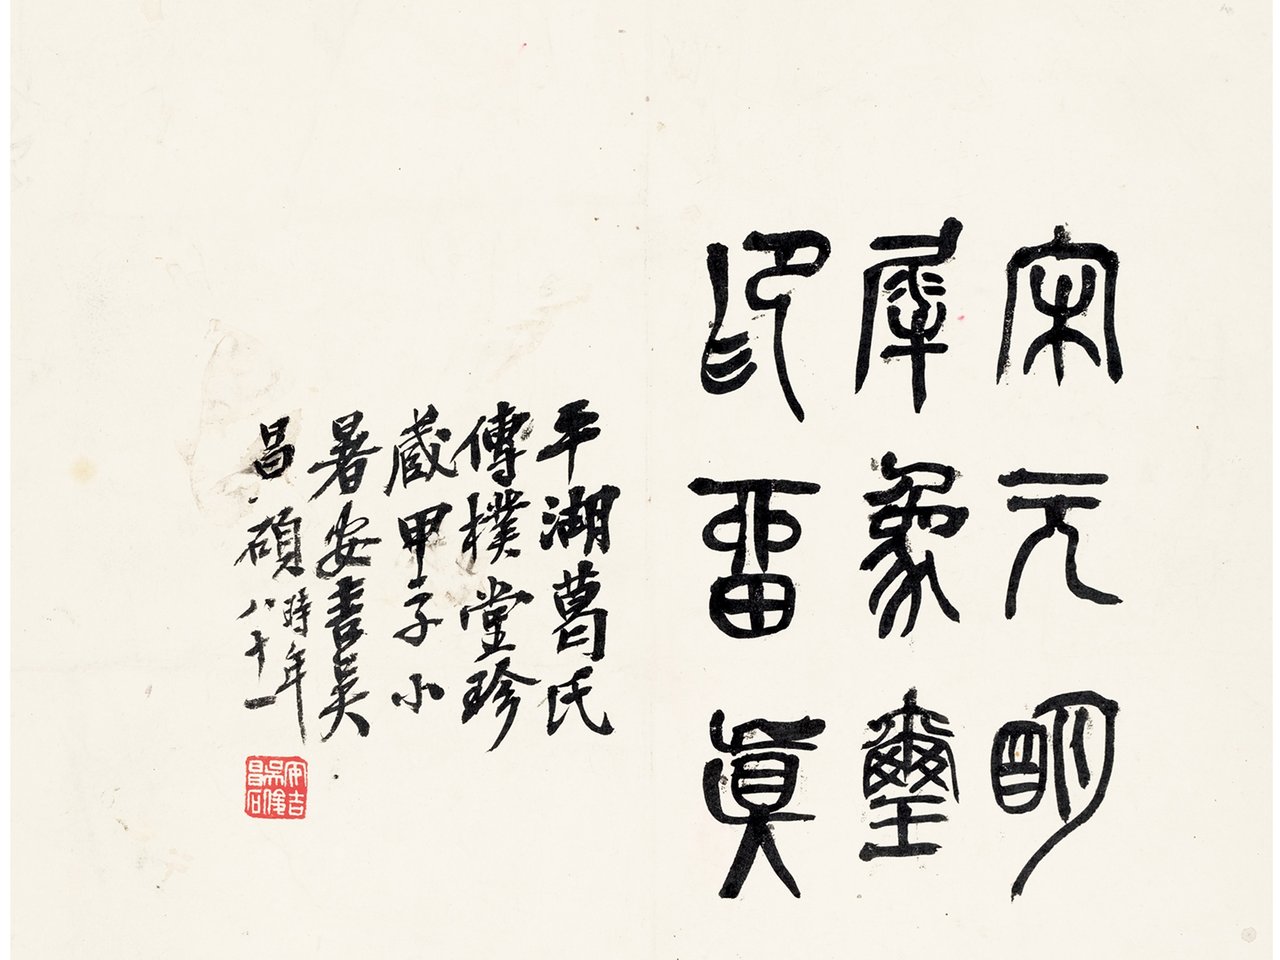 宋元明
犀象璽
印留真
平湖葛氏
傳樸堂珍
藏甲子小
暑安吉吳
昌碩時年
八十一
安吉吳俊昌石